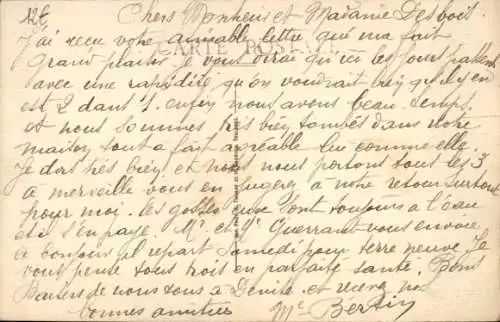 12€
Chers Monsieur et Madame Desbois.
J'ai reçu votre aimable lettre qui m'a fait
CARTE POSTALE
grand plaisir je vous dirai qu'ici les jours passent
avec une rapidité qu'on voudrait bien qu'ils y en
est 2 dans 1. enfin nous avons beau temps.
et nous sommes très bien tombés dans notre
maison tout a fait agréable lui comme elle.
Je dors très bien. et nous nous portons tous les 3
à merveille vous en jugerez a notre retour surtout
pour moi. les gosses eux vont toujours a l'eau
ça s'en paye. Mr et Me Guerrant vous envoie
le bonjour il repart Samedi pour terre neuve. Je
vous pense tous trois en parfaite santé. Bons
Baisers de nous tous a Denise. et recevez nos
bonnes amitiés Me Bertin